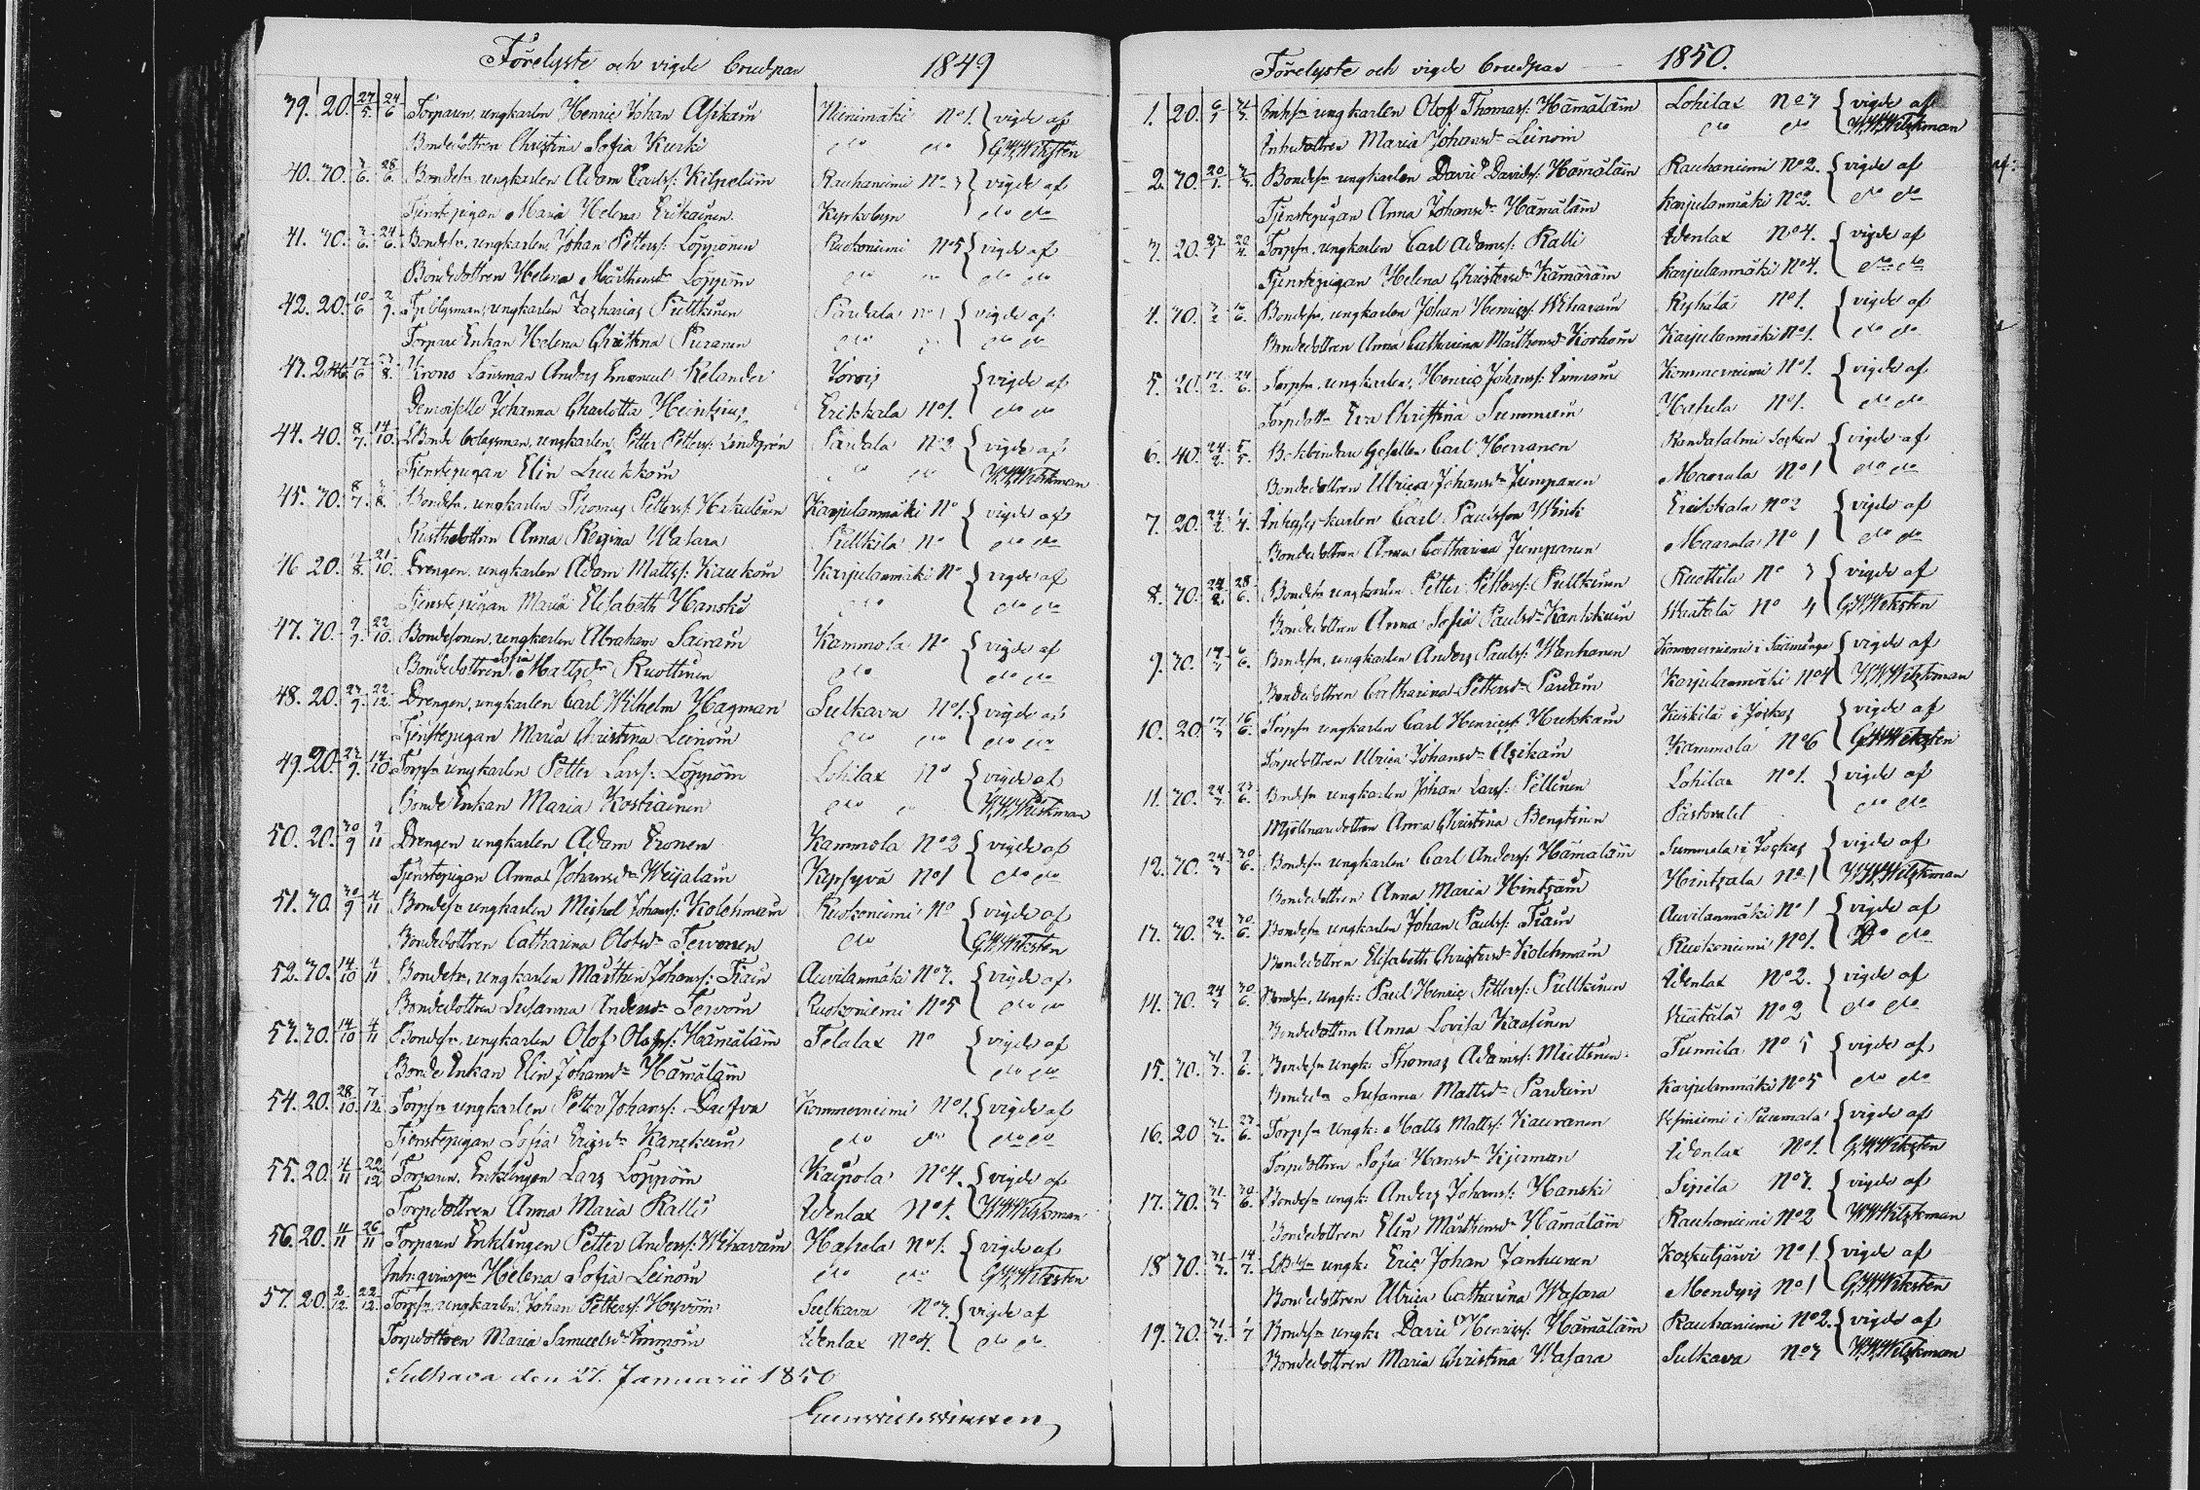 Förelyste och vigde brudpar 1849
39. 20. 27/5 24/6 Torparen, ungkarlen Henric Johan Asikain Niinimäki No 1. vigde af
Bondedottren Christina Sofia Kurki do do G.W. Wiksten
40. 30. 3/6 28/6 Bondesn. ungkarlen Adam Paulss: Kilpeläin Rauhaniemi No 3 vigde af
Tjenstepigan Maria Helena Erikainen Kyrkobyn do do
41. 30. 3/6 24/6 Bondesn. ungkarlen, Johan Petterss: Löppönen Ruokoniemi No 5 vigde af
Bondedottren Helena Mårthensdr Löppöin do do do do
42. 20. 10/6 2/9 ungkarlen Zacharias Pulkkinen Pardala No 1 vigde af
Torpare Enkan Helena Christina Puranen do do do do
43. 17/6 Krono Länsman Anders Emanuel Kelander Jorois vigde af
Demoiselle Johanna Charlotta Heintzius Erikkala No 1. do do
44. 40. 8/7 14/10 Bonde bolagsman, ungkarlen Petter Petterss: Lindgrén Pardala No 2 vigde af
Tjenstepigan Elin Luukkoin do do W.W. Witzkman
45. 30. 8/7 Bondesn. ungkarlen Thomas Petterss: Hakulinen Karjulanmäki No vigde af
Rusthdottren Anna Regina Wasara Pulkkila No do do
46 20. 21/10 Drengen, ungkarlen Adam Mattss: Kaukoin Karjulanmäki No vigde af
Tjenstepigan Maria Elisabeth Hanski do do do
47. 30. 9/9 22/10 Bondesonen, ungkarlen Abraham Sairain Kammola No vigde af
Bondedottren Sofia Mattsdr Ruottinen do do do
48. 20. 23/9 22/12 Drengen, ungkarlen Carl Wilhelm Hagman Sulkava No 1. vigde af
Tjenstepigan Maria Christina Leinoin do do do do
49. 20. 23/9 14/10 Torpsn ungkarlen Petter Larss: Löppöin Lohilax No vigde af
Bonde Enkan Maria Kostiainen do W.W. Witzkman
50. 20. 30/9 9/11 Drengen ungkarlen Adam Eronen Kammola No 3 vigde af
Tjenstepigan Anna Johansdr Weijalain Kypsyvä No 1 do do
51. 30. 30/9 4/11 Bondesn ungkarlen Michel Johanss: Kolehmain Ruokoniemi No vigde af
Bondedottren Catharina Olofsdr Tervonen do G.W. Wiksten
52. 30. 14/10 4/11 Bondesn. ungkarlen Mårthen Johanss: Tiain Auvilanmäki No 3. vigde af
Bondedottren Susanna Andersdr Tervoin Ruokoniemi No 5 do do
53. 30. 14/10 4/11 Bondesn. ungkarlen Olof Olofss: Hämäläin Telalax No vigde af
Bonde Enkan Elin Johansdr Hämäläin do do
54. 20. 28/10 7/12 Torpsn ungkarlen Petter Johanss: Daefva Kommerniemi No 1. vigde af
Tjenstepigan Sofia Ericsdr Kanskain do do do do
55. 20. 4/11 29/12 Torparen, Enklingen Lars Löppöin Kaipola No 4. vigde af
Torpdottren Anna Maria Ralli Idenlax No 1. W.W. Witzkman
56. 20. 4/11 26/11 Torparen Enklingen Petter Anderss: Wihavain Hasula No 1. vigde af
Inhqvinspn Helena Sofia Leinoin do do G.W. Wiksten
57. 20. 2/12 22/12 Torpsn. ungkarlen, Johan Petterss: Hyvöin Sulkava No 3. vigde af
Torpdottren Maria Samuelsdr Immoin Idenlax No 4. do do
Sulkava den 27. Januarii 1850

Förelyste och vigde brudpar 1850.
1. 20. 6/1 Inhsn ungkarlen Olof Thomass: Hämäläin Lohilax No 3 vigde af
Inhdottren Maria Johansdr Leinoin do do W.W. Witzkman
2. 30. 20/1 Bondesn ungkarlen David Davidss: Hämäläin Rauhaniemi No 2. vigde af
Tjenstepigan Anna Johansdr Hämäläin Karjulanmäki No 2. do do
3. 20. 27/1 Torpsn. ungkarlen Carl Adamss: Ralli Idenlax No 4. vigde af
Tjenstepigan Helena Christersdr Kämäräin Karjulanmäki No 4. do do
4. 30. 3/2 Bondesn. ungkarlen Johan Henricss: Wihavain Ryhälä No 1. vigde af
Bondedottren Anna Catharina Mårthensdr Korhoin Karjulanmäki No 1. do do
5. 20. 17/2 24/6 Torpsn. ungkarlen, Henric Johanss: Immoin Kommerniemi No 1. vigde af
Torpdottr Eva Christina Summain Hasula No 1. do do
6. 40. 24/2 5/5 Bokbindare Gesellen Carl Herranen Randasalmi Socken vigde af
Bondedottren Ulrica Johansdr Jumpanen Maarala No 1 do do
7. 20. 24/2 karlen Carl Paulsson Wink Erikkala No 2 vigde af
Bondedottren Anna Catharina Jumpanen Maarala No 1 do do
8. 30. 24/2 28/6 Bondesn ungkarlen Petter Petterss: Pulkkinen Ruottila No 3 vigde af
Bondedottren Anna Sofia Paulsdr Kankkuin Wäätälä No 4 G.W. Wiksten
9. 30. 17/3 6/6. Bondesn. ungkarlen Anders Paulss: Wanhanen Kommerniemi i Sääminge vigde af
Bondedottren Catharina Pettersdr Pardain Karjulanmäki No 4 W.W. Witzkman
10. 20. 17/3 16/6 Torpsn ungkarlen Carl Henricss: Hukkain Kuiskila i Jockas vigde af
Torpdottren Ulrica Johansdr Asikain Kammola No 6 G.W. Wiksten
11. 30. 24/3 23/6 Bondesn ungkarlen Johan Larss: Pellinen Lohilax No 1. vigde af
Mjöllnaredottren Anna Christina Bengtinen Pastoratet do do
12. 30. 24/3 30/6 Bondesn ungkarlen Carl Anderss: Hämäläin Summala i Jockas vigde af
Bondedottren Anna Maria Hintsain Hintsala No 1 W.W. Witzkman
13. 30. 24/3 30/6 Bondesn ungkarlen Johan Paulss: Tiain Auvilanmäki No 1 vigde af
Bondedottren Elisabeth Christersdr Kolehmain Ruokoniemi No 1. do do
14. 30. 24/3 30/6 Bondesn. ungk: Paul Henric Petterss: Pulkkinen Idenlax No 2. vigde af
Bondedottren Anna Lovisa Kaasinen Wäätälä No 2 do do
15. 30. 31/3 Bondesn ungk: Thomas Adamss: Miettinen Tunnila No 5 vigde af
Bondedr Susanna Mattsdr Pardain Karjulanmäki No 5 do do
16. 20 31/3 23/6 Torpsn Ungk: Matts Mattss: Kauranen i Puumala vigde af
Torpdottren Sofia Hansdr Kjerman Idenlax No 1. G.W. Wiksten
17. 30. 31/3 30/6 Bondesn ungk: Anders Johanss: Hanski Sipilä No 3. vigde af
Bondedottren Elin Mårthensdr Hämäläin Rauhaniemi No 2 W.W. Witzkman
18 30. 31/3 14/7 ungk: Eric Johan Janhunen Koskutjärvi No 1. vigde af
Bondedottren Ulrica Catharina Wasara Mendynis No 1 G.W. Wiksten
19. 30. 31/3 1/7 Bondesn ungk: David Henricss: Hämäläin Rauhaniemi No 2. vigde af
Bondedottren Maria Christina Wasara Sulkava No 3 W.W. Witzkman